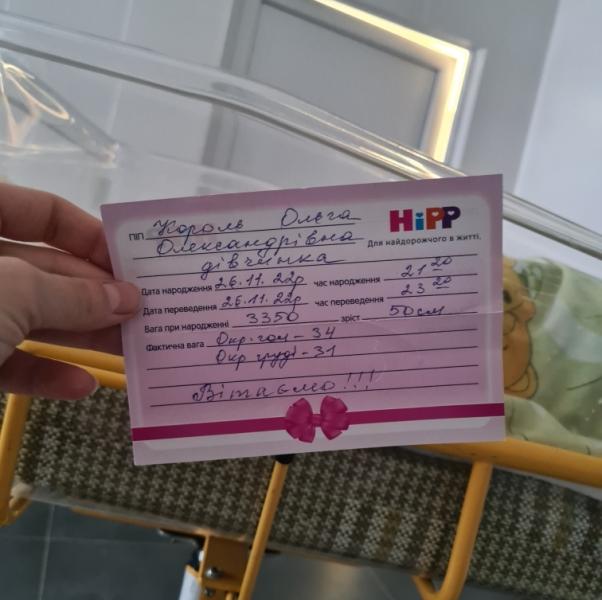 HiPP
Для найдорожчого в житті.
ПІП Король Ольга
Олександрівна
дівчинка
Дата народження 26.11.22р час народження 21 20
Дата переведення 26.11.22р час переведення 23 20
Вага при народженні 3350 зріст 50см
Фактична вага Окр. гол – 34
Окр груді – 31
Вітаємо!!!